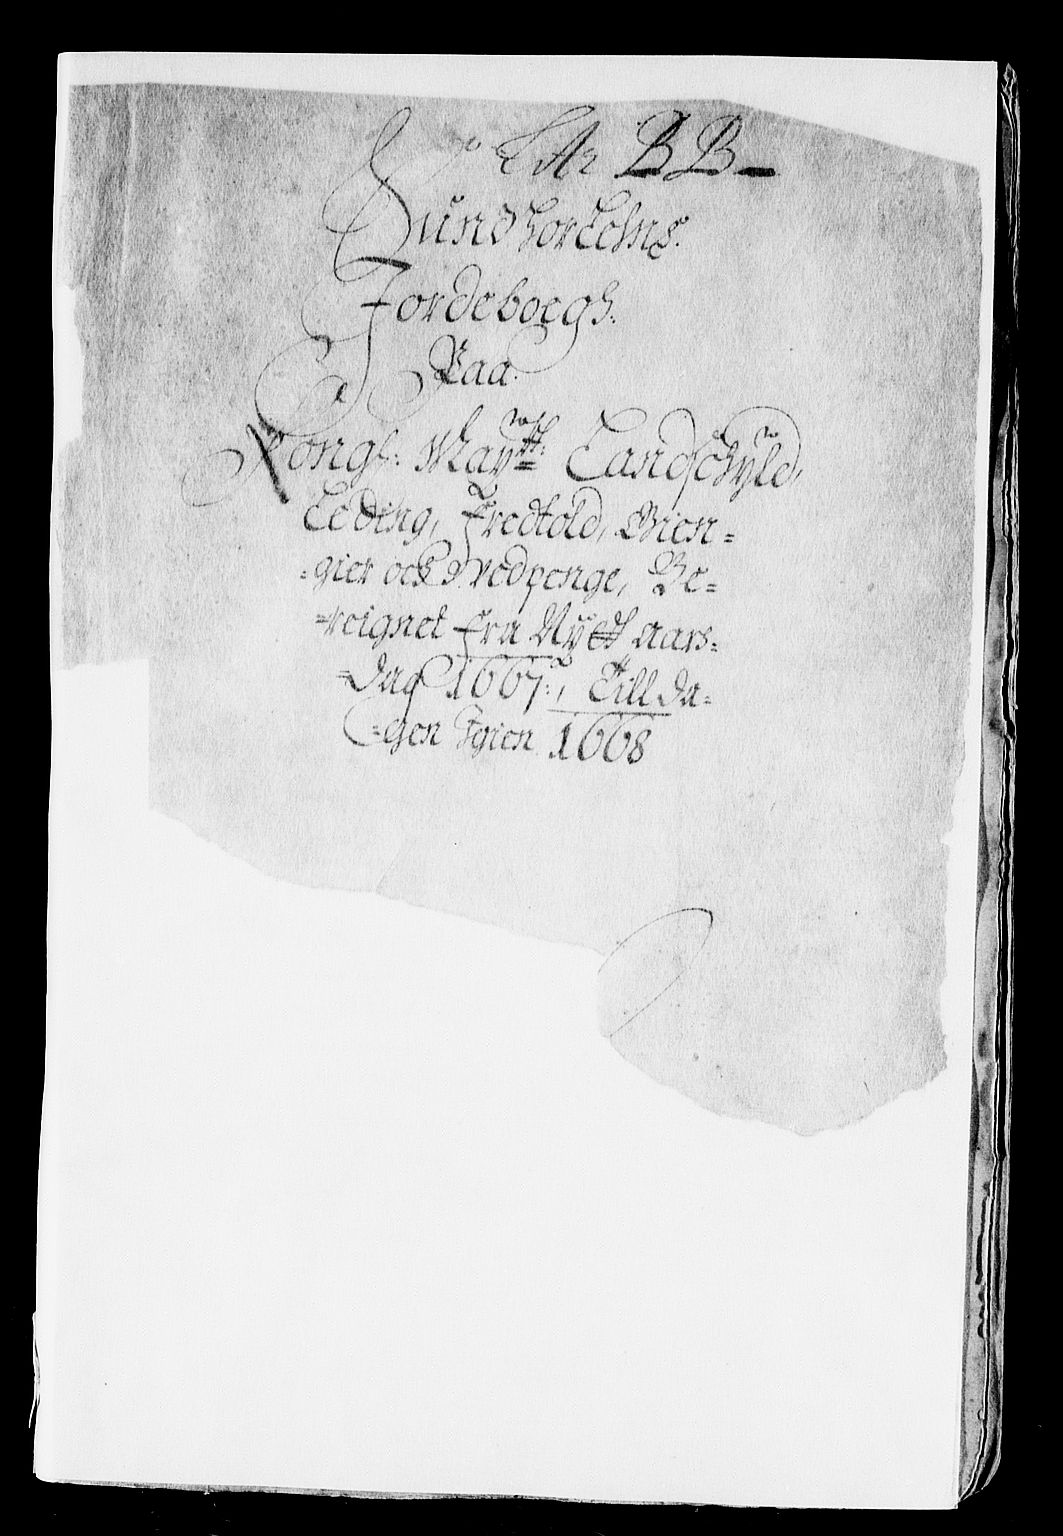 Ltr BB
Sundhorlehns
Jordeboegh
Paa
Kongs: Maytt: Landschyld,
Leding, Fredtold, Gien=
=gier och Wedpenge, Be=
=reignet fra Nytt aars=
=dag 1667, Till da=
=gen Igien 1668